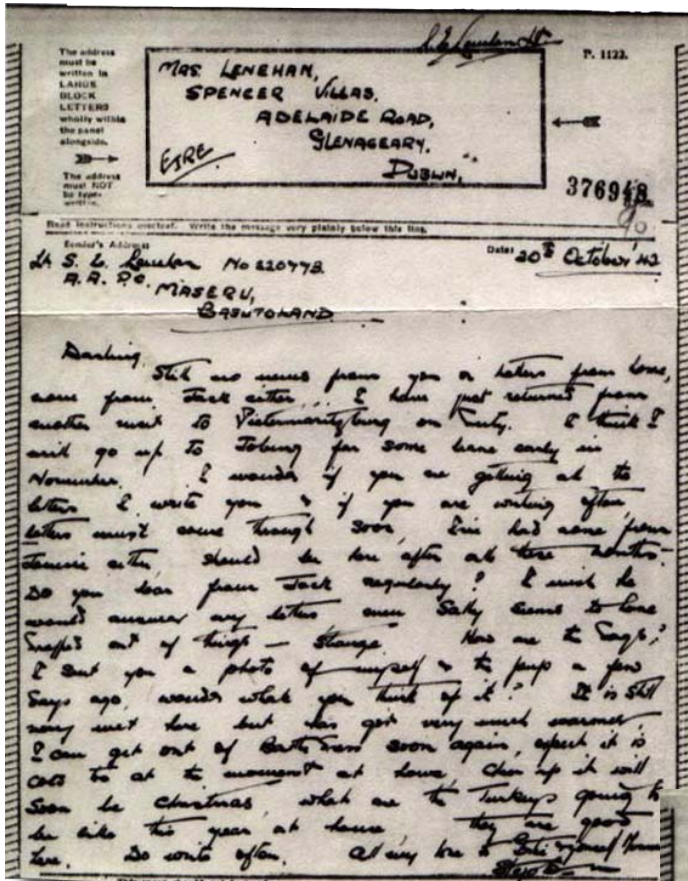 The address must be written in LARGE BLOCK LETTERS wholly within the panel alongside.
The address must NOT be type-written.
P. 1122.
MRS. LENEHAN,
SPENCER VILLAS,
ADELAIDE ROAD,
GLENAGEARY,
DUBLIN,
EIRE
376948
Read instructions overleaf. Write the message very plainly below this line.
Sender's Address
Date: 20th October '42
Lt S. E. Lenehan No 220773
A.A.P.C.
MASERU,
BASUTOLAND
Darling,
Still no news from you or letters from home,
none from Jack either. I have just returned from
another visit to Pietermaritzburg on duty. I think I
will go up to Joburg for some leave early in
November. I wonder if you are getting all the
letters I write you & if you are writing often,
letters must come through soon, I've had none from
either, should be here after all these months.
Do you hear from Jack regularly? I wish he
would answer my letters even Sally seems to have
out of things — strange. How are the dogs?
I sent you a photo of myself & the pup a few
days ago, wonder what you think of it? It is still
very wet here but has got very much warmer
I can get out of Battle Dress soon again, expect it is
cold too at the moment at home, cheer up it will
soon be christmas, what are the Turkeys going to
be like this year at home they are good
here. Do write often. All my love to